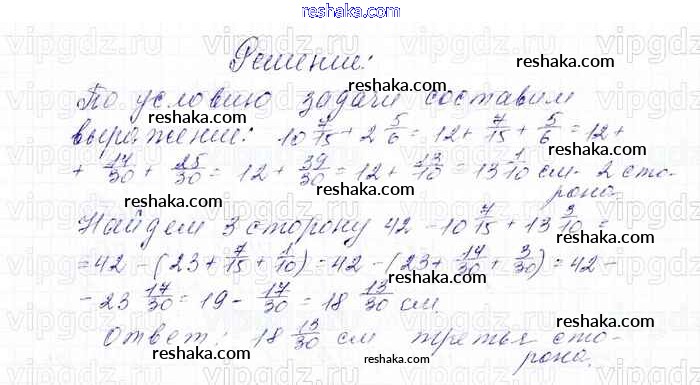 reshaka.com
Решение:
reshaka.com
По условию задачи составим
reshaka.com
выражение: 10 7/15 + 2 5/6 = 12 + 7/15 + 5/6 = 12 +
reshaka.com
+ 14/30 + 25/30 = 12 + 39/30 = 12 + 13/10 = 13 1/10 см - 2 сто-
рона.
reshaka.com reshaka.com
Найдем 3 сторону 42 - 10 7/15 + 13 3/10 =
reshaka.com
= 42 - (23 + 7/15 + 1/10) = 42 - (23 + 14/30 + 3/30) = 42 -
reshaka.com
- 23 17/30 = 19 - 17/30 = 18 13/30 см
reshaka.com
Ответ: 18 13/30 см третья сто-
рона.
reshaka.com reshaka.com
reshaka.com